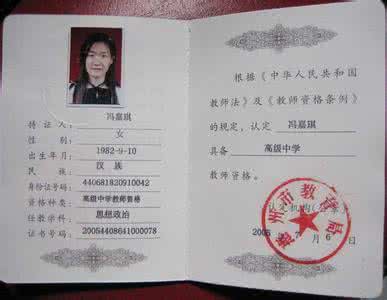 持证人： 冯嘉琪
性别： 女
出生年月： 1982-9-10
民族： 汉族
身份证号码： 440681820910042
资格种类： 高级中学教师资格
任教学科： 思想政治
证书号码： 20054408641000078
根据《中华人民共和国
教师法》及《教师资格条例》
的规定，认定 冯嘉琪
具备 高级中学
教师资格。
市教育局
认定机构（公章）
2005 年 7月6日